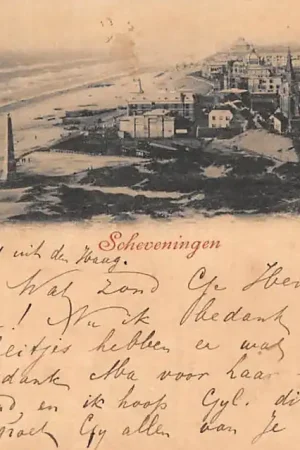 Scheveningen
uit den Haag.
Wat zond Ge
! Nu ik bedank
hebben er wat
dank Aba voor haar
en ik hoop Gyl. di
groet Gy allen van Je